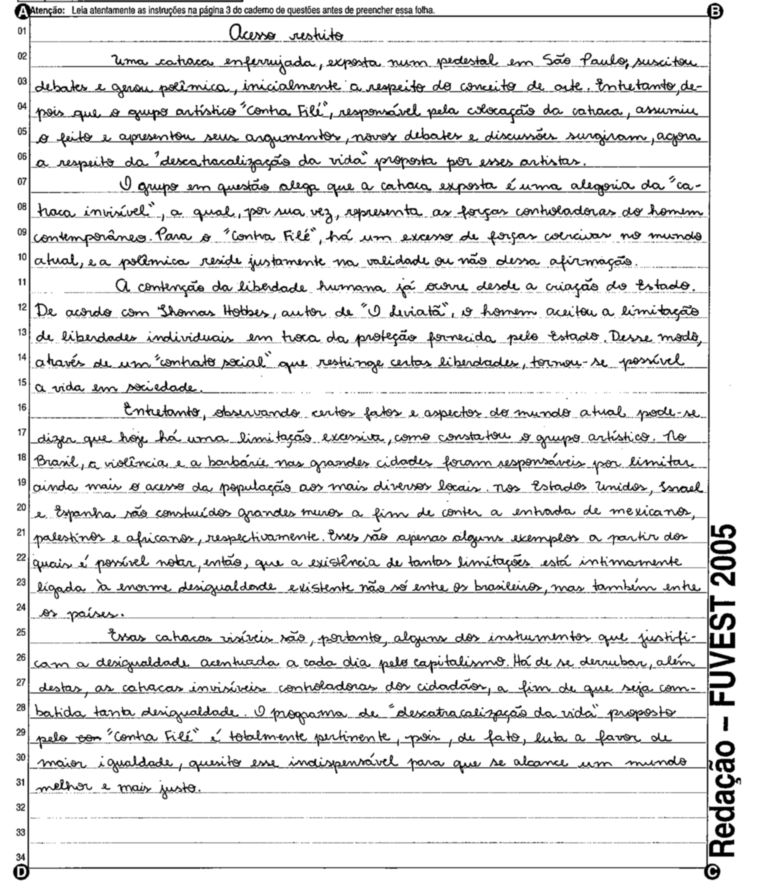 Atenção: Leia atentamente as instruções na página 3 do caderno de questões antes de preencher essa folha.
A
B
01 Acesso restrito
02 Uma catraca enferrujada, exposta num pedestal em São Paulo, suscitou
03 debates e gerou polêmica, inicialmente a respeito do conceito de arte. Entretanto, de-
04 pois que o grupo artístico "Contra Filé", responsável pela colocação da catraca, assumiu
05 o feito e apresentou seus argumentos, novos debates e discussões surgiram, agora
06 a respeito da "descatracalização da vida" proposta por esses artistas.
07 O grupo em questão alega que a catraca exposta é uma alegoria da "ca-
08 traca invisível", a qual, por sua vez, representa as forças controladoras do homem
09 contemporâneo. Para o "Contra Filé", há um excesso de forças coercivas no mundo
10 atual, e a polêmica reside justamente na validade ou não dessa afirmação.
11 A contenção da liberdade humana já ocorre desde a criação do Estado.
12 De acordo com Thomas Hobbes, autor de "O Leviatã", o homem aceitou a limitação
13 de liberdades individuais em troca da proteção fornecida pelo Estado. Desse modo,
14 através de um "contrato social" que restringe certas liberdades, tornou-se possível
15 a vida em sociedade.
16 Entretanto, observando certos fatos e aspectos do mundo atual pode-se
17 dizer que hoje há uma limitação excessiva, como constatou o grupo artístico. No
18 Brasil, a violência e a barbárie nas grandes cidades foram responsáveis por limitar
19 ainda mais o acesso da população aos mais diversos locais. Nos Estados Unidos, Israel
20 e Espanha são construídos grandes muros a fim de conter a entrada de mexicanos,
21 palestinos e africanos, respectivamente. Esses são apenas alguns exemplos a partir dos
22 quais é possível notar, então, que a existência de tantas limitações está intimamente
23 ligada à enorme desigualdade existente não só entre os brasileiros, mas também entre
24 os países.
25 Essas catracas visíveis são, portanto, alguns dos instrumentos que justifi-
26 cam a desigualdade acentuada a cada dia pelo capitalismo. Há de se derrubar, além
27 destas, as catracas invisíveis controladoras dos cidadãos, a fim de que seja com-
28 batida tanta desigualdade. O programa de "descatracalização da vida" proposto
29 pelo con "Contra Filé" é totalmente pertinente, pois, de fato, luta a favor de
30 maior igualdade, quesito esse indispensável para que se alcance um mundo
31 melhor e mais justo.
32
33
34
D
C
Redação – FUVEST 2005